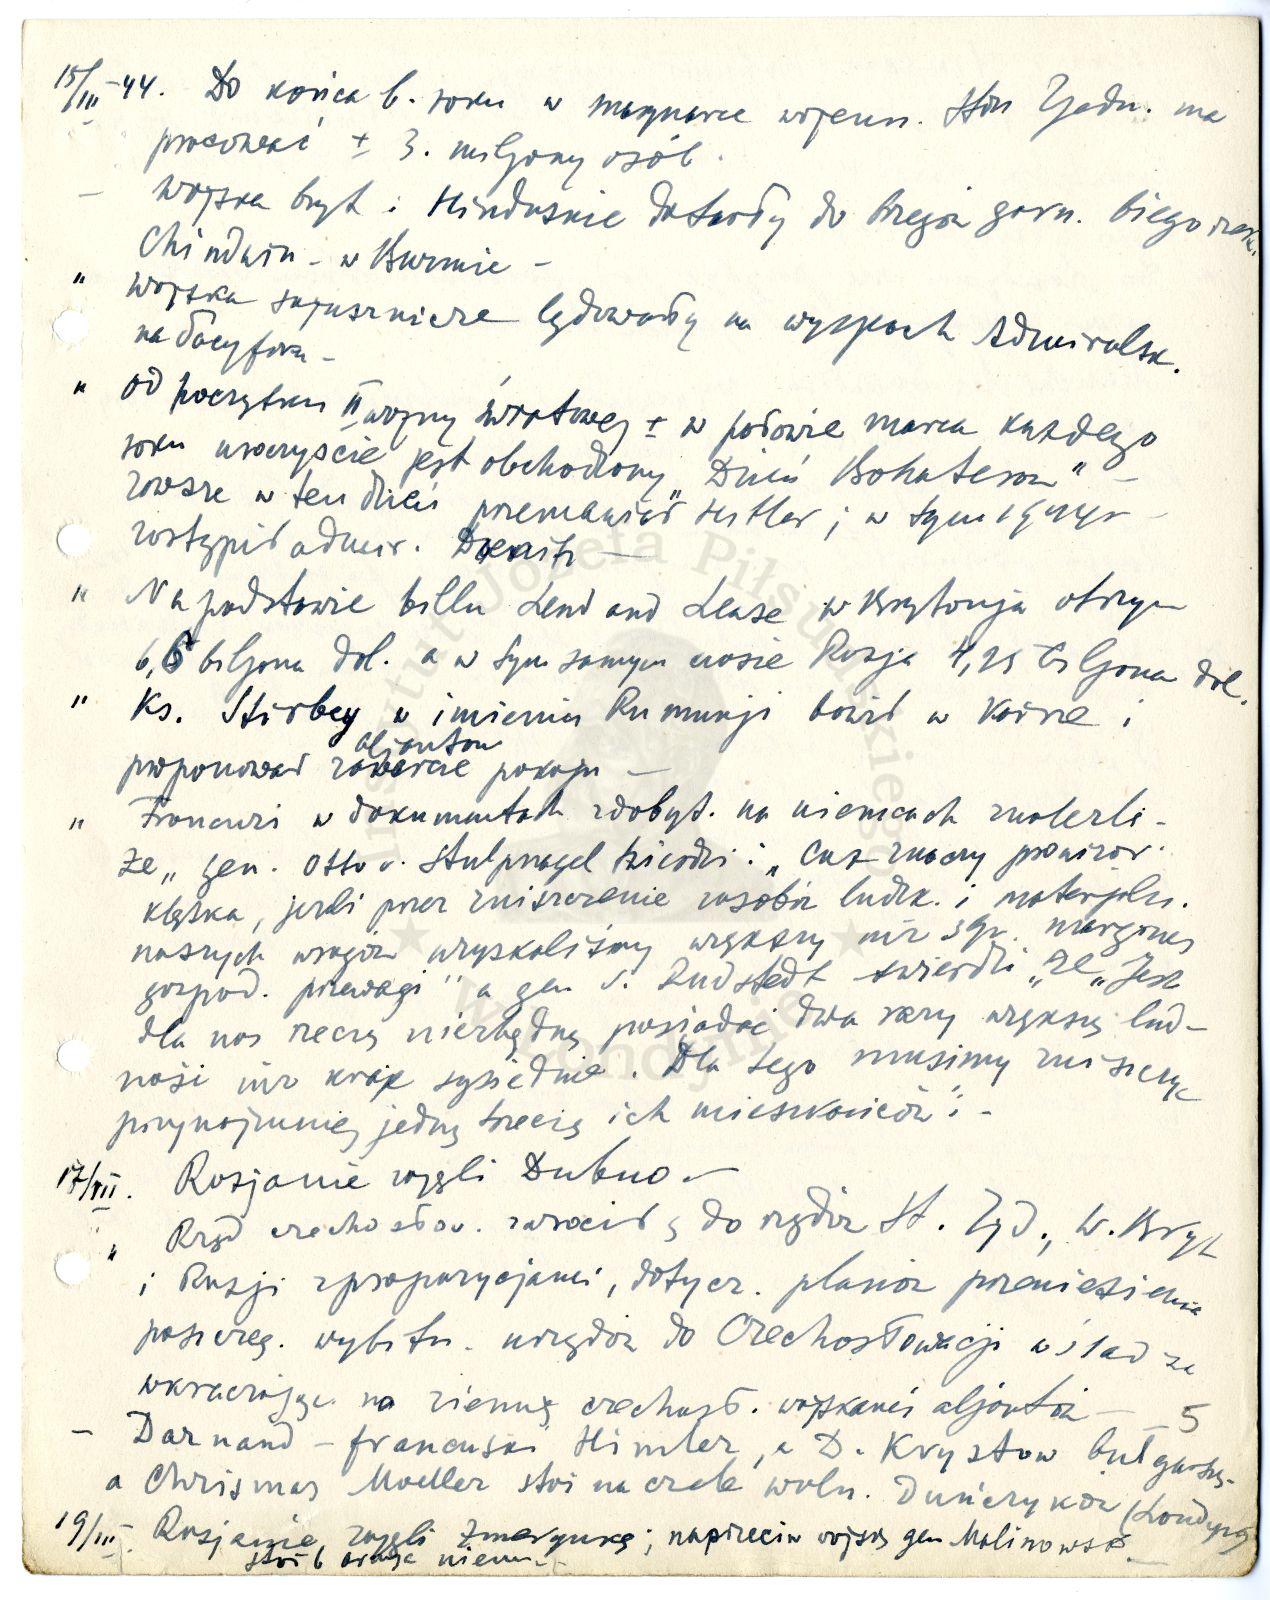 15/III-44. Do końca b. roku w marynarce wojenn. Stan Zjedn. ma
pracować ± 3. miljony osób.
– Wojska bryt i Hinduskie dotarły do brzegów górn. biegu rzek.
Chindwin – w Burmie –
" Wojska sojusznicze lądowały na wyspach Admiralsk.
na Pacyfiku –
" Od początku II wojny światowej ± w połowie marca każdego
roku uroczyście jest obchodzony „Dzień Bohaterów" –
zawsze w ten dzień przemawiał Hitler; w tym 1944 r –
zastąpił admir. Doenitz –
" Na podstawie billu Lend and Lease W Brytonja otrzym
6,6 biljona dol. a w tym samym czasie Rosja 4,25 biljona dol.
" Ks. Stirbey w imieniu Rumunji bawił w Kairze i
aljantom
proponował zawarcie pokoju –
" Francuzi w dokumentach zdobyt. na niemcach znaleźli –
że „gen. Otto v. Stulpnagel twierdzi: „Cuż znaczy prowizor.
klęska, jeśli przez zniszczenie zasobów ludzk. i materjaln.
naszych wrogów uzyskaliśmy większy niż margines
gospod. przewagi" a gen v. Rudstedt twierdzi, że „Jest
dla nas rzeczą niezbędną posiadać dwa razy większą lud-
ność niż kraje sąsiednie. Dla tego musimy zniszczyć
przynajmniej jedną trzecią ich mieszkańców": –
17/III. Rosjanie zajęli Dubno. –
" Rząd czechosłow. zwrócił ę do rządów St. Zjd., W. Bryt
i Rosji z propozycjami, dotycz. planów przeniesienia
poszczeg. wybitn. urzędów do Czechosłowacji w ślad za
wkraczając. na ziemię czechosł. wojskami aljantów – – 5
– Darnand – francuski Himler, a D. Krystow bułgarski –
a Chrismas Moeller stoi na czele woln. Duńczyków (Londyn)
19/III – Rosjanie zajęli Zmerynkę; naprzeciw wojsk gen Malinowsk. –
stoi 6 armja niem. –
Instytut Józefa Piłsudskiego
w Londynie